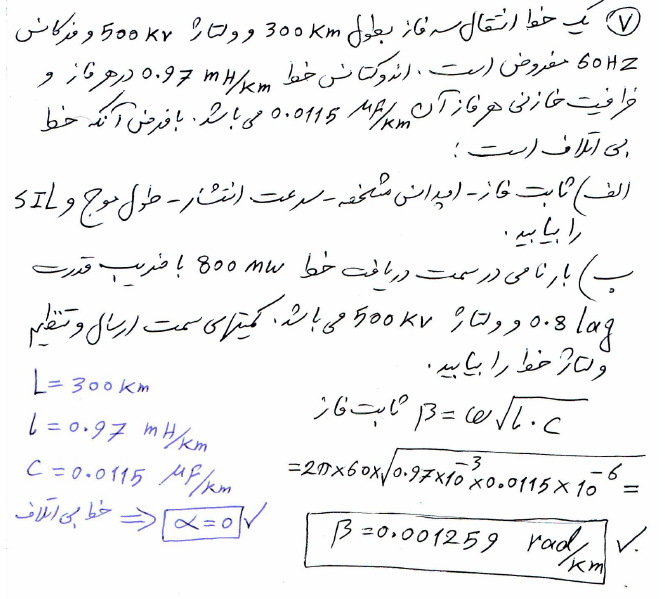 ۷) یک خط انتقال سه فاز بطول 300 Km و ولتاژ 500 kv و فرکانس
60HZ مفروض است. اندوکتانس خط 0.97 mH/km در هر فاز و
ظرفیت خازنی هر فاز آن 0.0115 μF/km می باشد. با فرض آنکه خط
بی اتلاف است:
الف) ثابت فاز - امپدانس مشخصه - سرعت انتشار - طول موج و SIL
را بیابید.
ب) بار نامی در سمت دریافت خط 800 mw با ضریب قدرت
0.8 lag و ولتاژ 500 kv می باشد. کمیتهای سمت ارسال و تنظیم
ولتاژ خط را بیابید.
L = 300 km
l = 0.97 mH/km
C = 0.0115 μF/km
خط بی اتلاف ⇒ α = 0 ✓
ثابت فاز β = ω√l.c
= 2π×60×√0.97×10⁻³×0.0115×10⁻⁶ =
β = 0.001259 rad/km ✓.